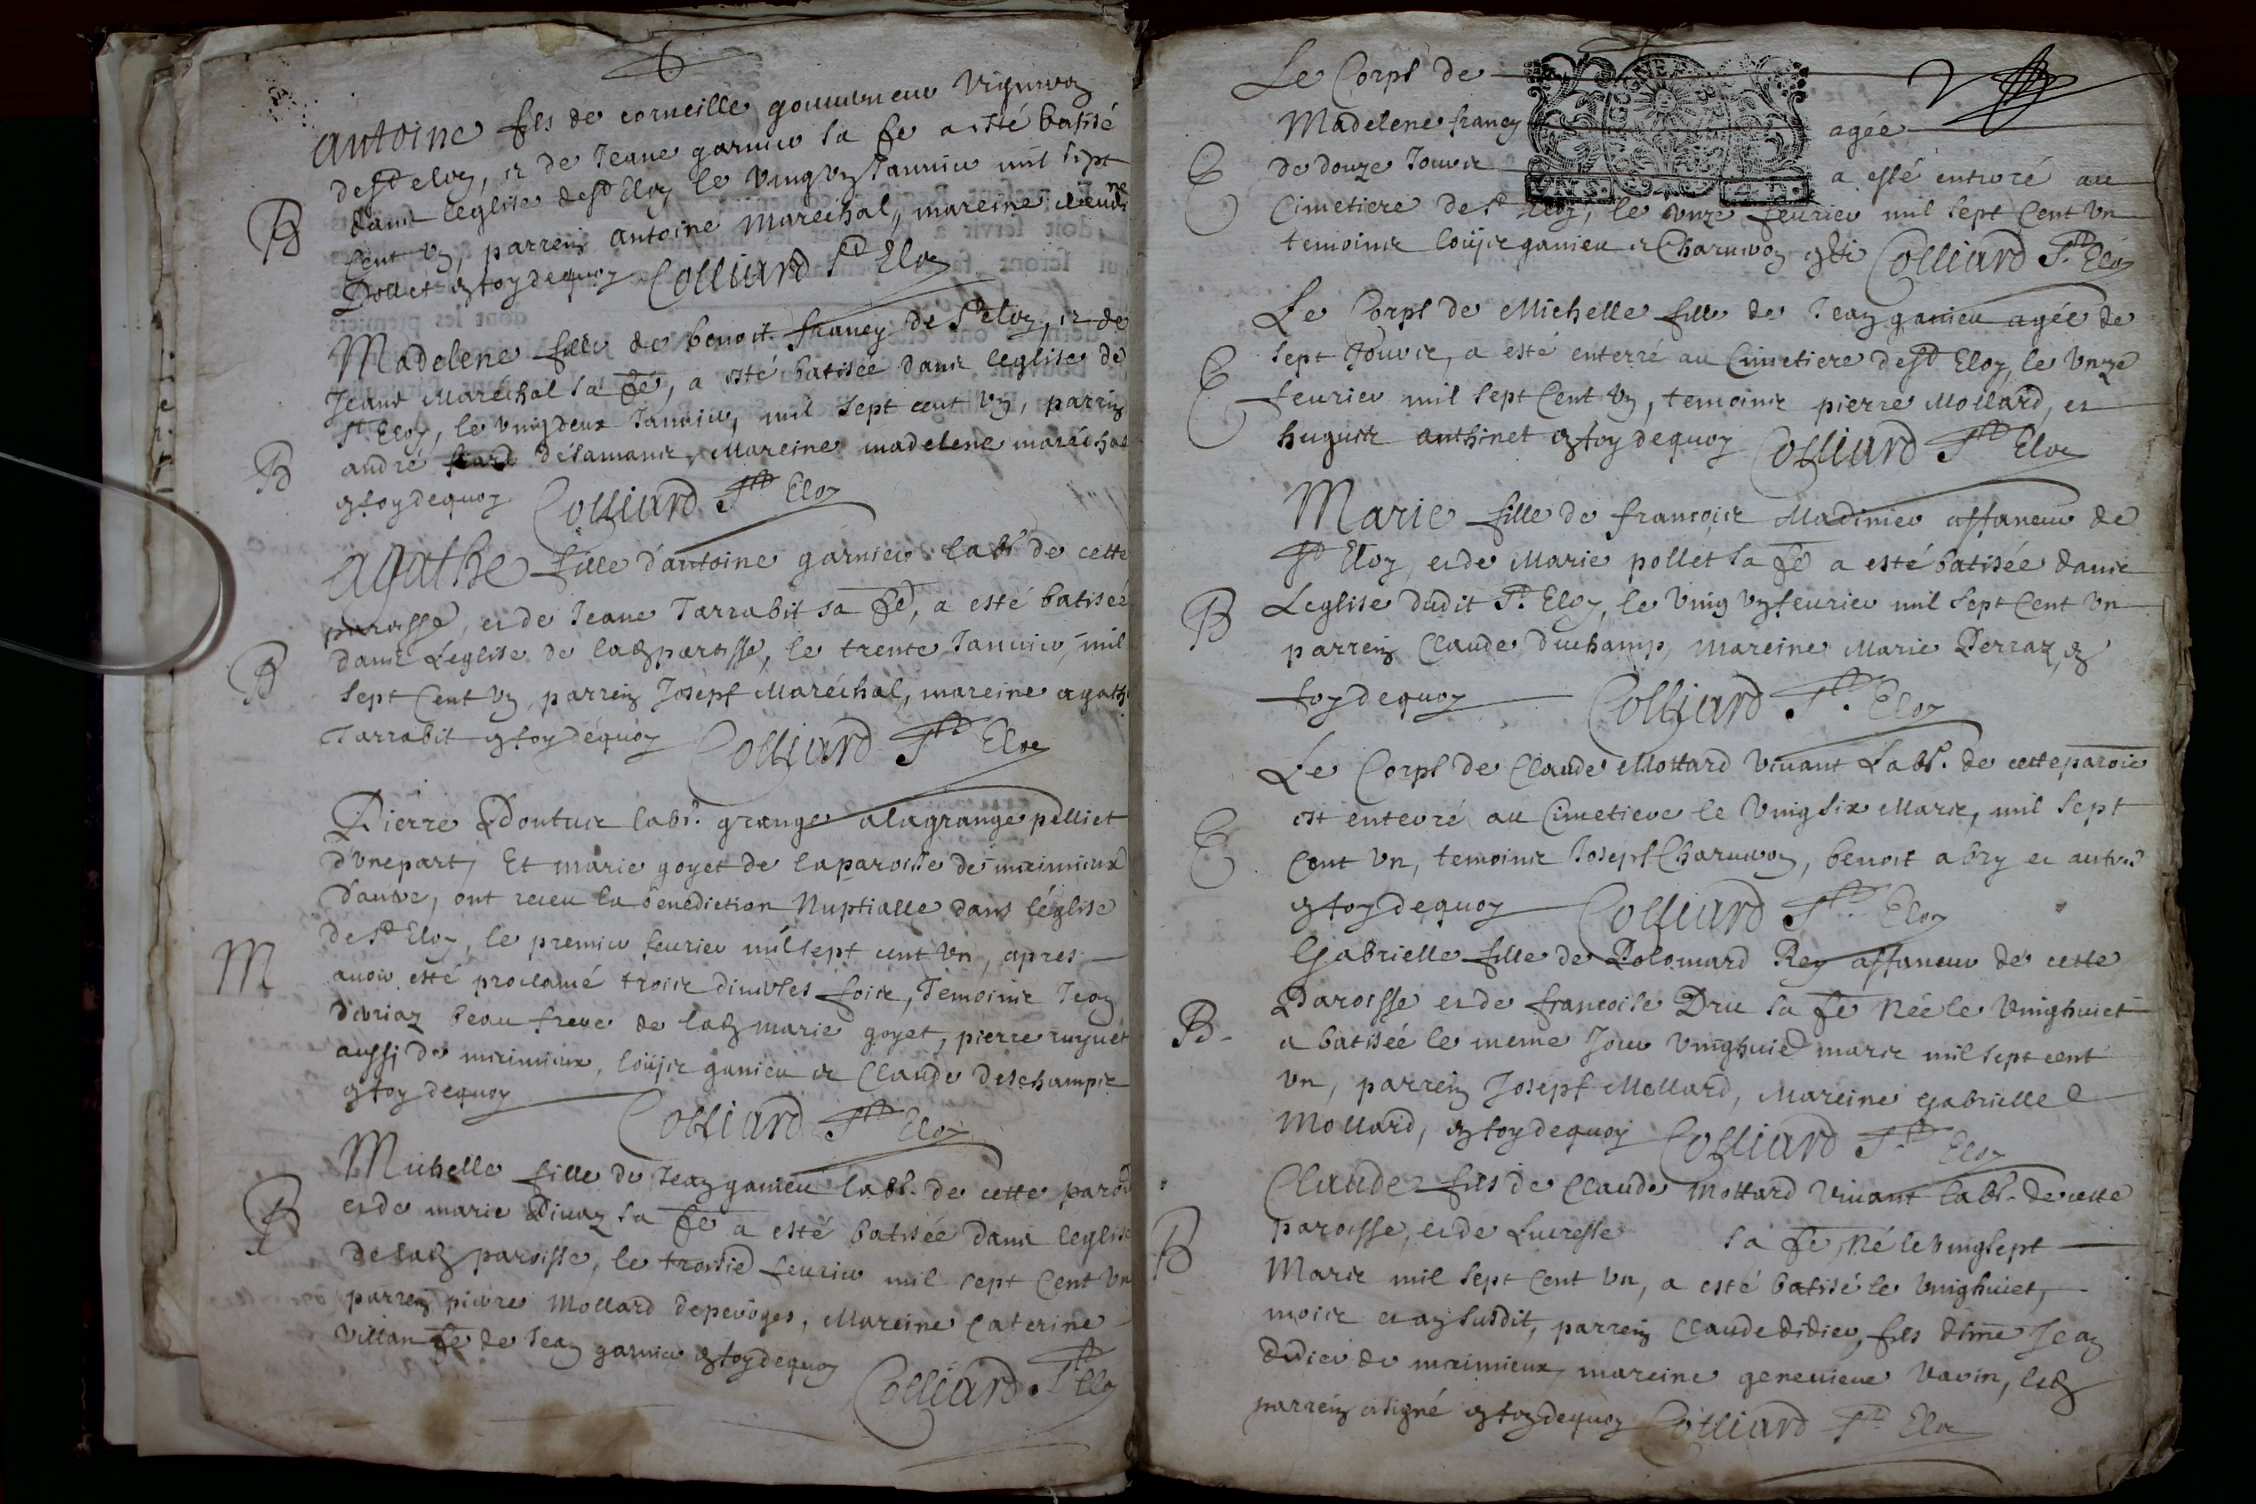 antoine fils de corneille gouverneur vigneron
de st eloy, et de Jeane garnier sa fe a esté batisé
B
dans leglise de st Eloy le vingt un Janvier mil sept
cent un, parrein antoine Maréchal, mareine claudine
Pollet en foy dequoy Colliard St Eloy
Madelene fille de benoit francy de St eloy, et de
Jeane Maréchal sa fe, a esté batisée dans leglise de
St Eloy, le vingdeux Janvier, mil sept cent un, parrein
B
andré delamans, Mareine madelene maréchal
en foy dequoy Colliard St Eloy
agathe fille d'antoine garnier labr de cette
paroisse, et de Jeane Tarrabit sa fe, a esté batisée
B
dans Leglise de lad paroisse, le trente Janvier, mil
sept Cent un, parrein Joseph Maréchal, mareine agathe
Tarrabit en foy déquoy Colliard St Eloy
Pierre labr. granger a la grange pelliet
d'une part, Et marie goyet de la paroisse de meximieux
d'autre, ont receu la benediction Nuptialle dans l'église
de St Eloy, le premier fevrier mil sept cent un, apres
M
avoir esté proclamé trois diverses fois, Temoins Jean
beau frere de lad marie goyet, pierre
aussi de meximieux, Louis ganieu et Claude deschamps
en foy dequoy Colliard St Eloy
Michelle fille de Jean ganieu labr. de cette paroisse
B
et de marie Divaz sa fe a esté batisée dans leglise
de lad paroisse, le troisie fevrier mil sept Cent un
parrein pierre Mollard de peroges, Mareine Caterine
Villan fe de Jean garnier en foy dequoy
Colliard St Eloy
Le Corps de
Madelene francy agée
E
de douze Jours a esté enterré au
Cimetiere de St Eloy, le unze fevrier mil sept Cent un
temoins Louis ganieu et Charveron Colliard St Eloy
Le Corps de Michelle fille de Jean ganieu agée de
E
sept Jours, a esté enterré au Cimetiere de St Eloy, le unze
fevrier mil sept Cent un, temoins pierre Mollard, et
hugues anthinet en foy dequoy Colliard St Eloy
Marie fille de francois Madinier affaneur de
St Eloy, et de Marie pollet sa fe a esté batisée dans
B
Leglise dudit St Eloy, le ving un fevrier mil sept Cent un
parrein Claude Duchamp, mareine Marie Perraz, en
foy dequoy Colliard St. Eloy
Le Corps de Claude Mottard vivant Labr. de cette paroisse
E
est enterré au Cimetiere le vingsix Mars, mil sept
Cent un, temoins Joseph Charveron, benoit abry et autres
en foy dequoy Colliard St Eloy
Gabrielle fille de Polomard Rey affaneur de cette
Paroisse et de francoise Dru sa fe Née le vinghuict
B
a batisée le meme Jour vinghuict mars mil sept cent
un, parrein Joseph Mollard, Mareine gabrielle
Mollard, en foy dequoy Colliard St. Eloy
Claude fils de Claude Mottard vivant labr. de cette
paroisse, et de Lucresse sa fe, Né le vingsept
B
Mars mil sept Cent un, a esté batisé le vinghuict,
mois et an susdit, parrein Claude didier, fils d'ho'me Jean
didier de meximieux, mareine genevieve vavin, led
parrein a signé en foy dequoy Colliard St Eloy